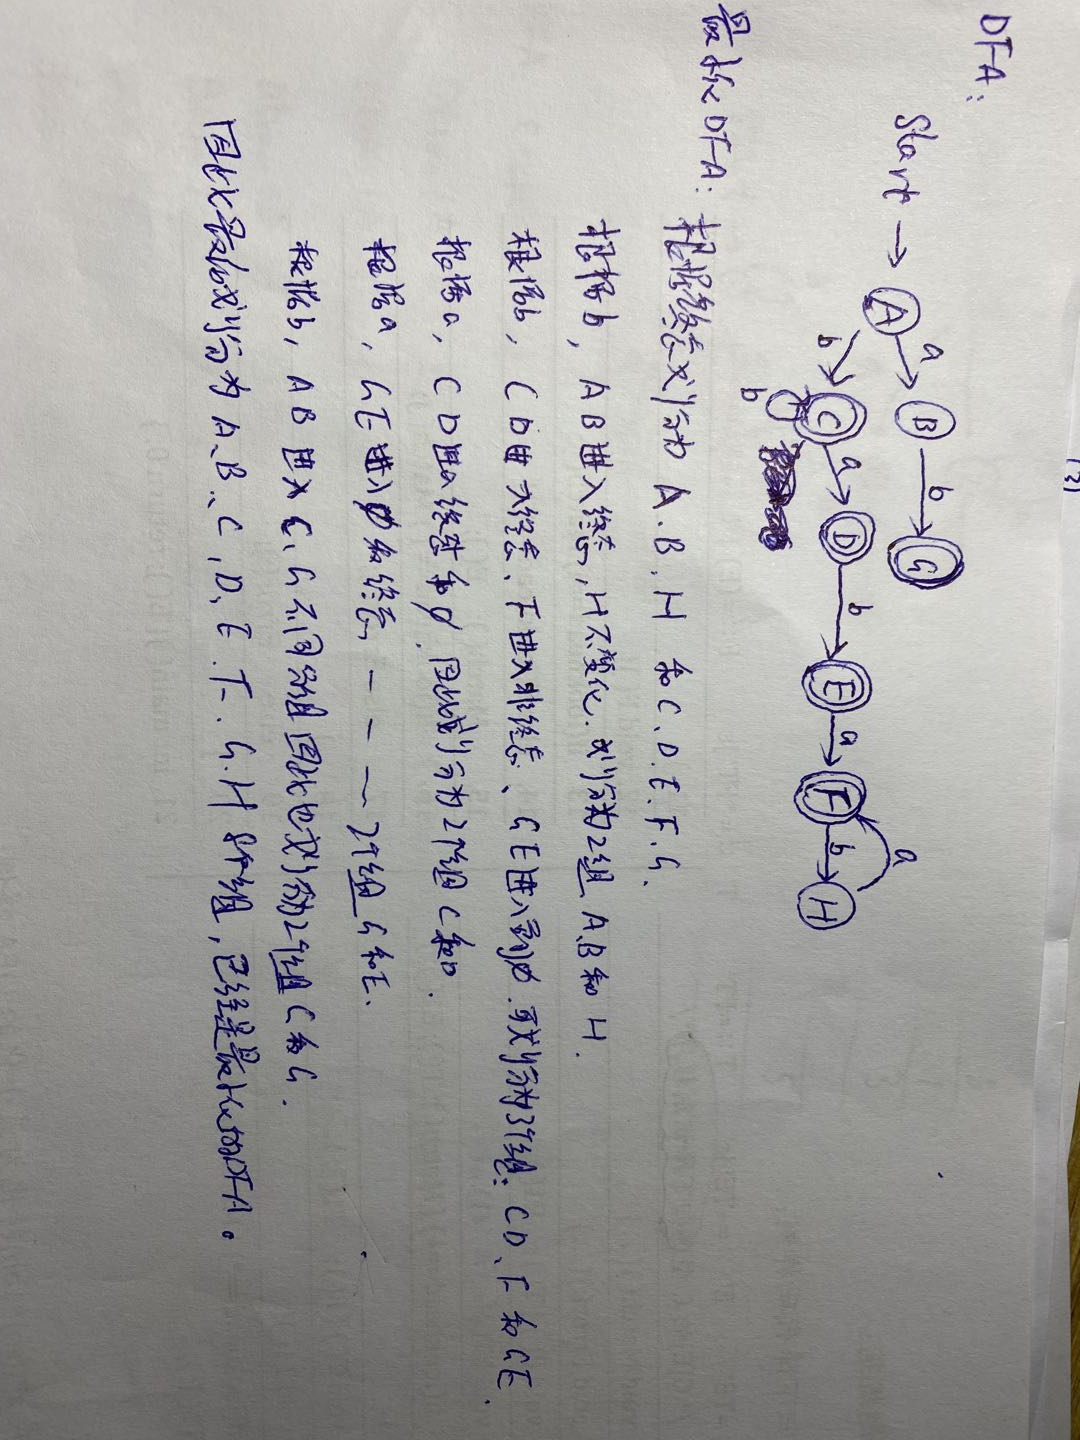 (3)
DFA:
Start → A a B b G
b C a D b E a F b H
b
a
最小化DFA: 根据终态划分为 A.B.H 和 C.D.E.F.G.
根据b, AB进入终态, H不变化. 划分为2组 A.B和H.
根据b, CD进入终态、F进入非终态、GE进入到∅. 可划分为3个组: CD、F和GE.
根据a, CD进入终态和∅. 因此划分为2个组C和D.
根据a, GE进入∅和终态 - - - 2个组G和E.
根据b, AB进入C、G不同分组因此也划分为2个组C和G.
因此最小化划分为A、B、C、D、E.F.G.H 8个组, 已经是最小化的DFA。